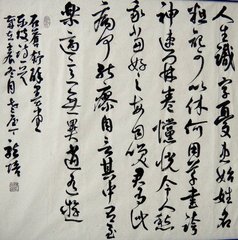 人生識字憂患始姓名
粗記可以休何用草書誇
神速開卷戃怳令人愁
我嘗好之每自笑君有此
病何能瘳自言其中有至
樂適意無異逍遙遊
石蒼舒醉墨堂
東坡詩一首